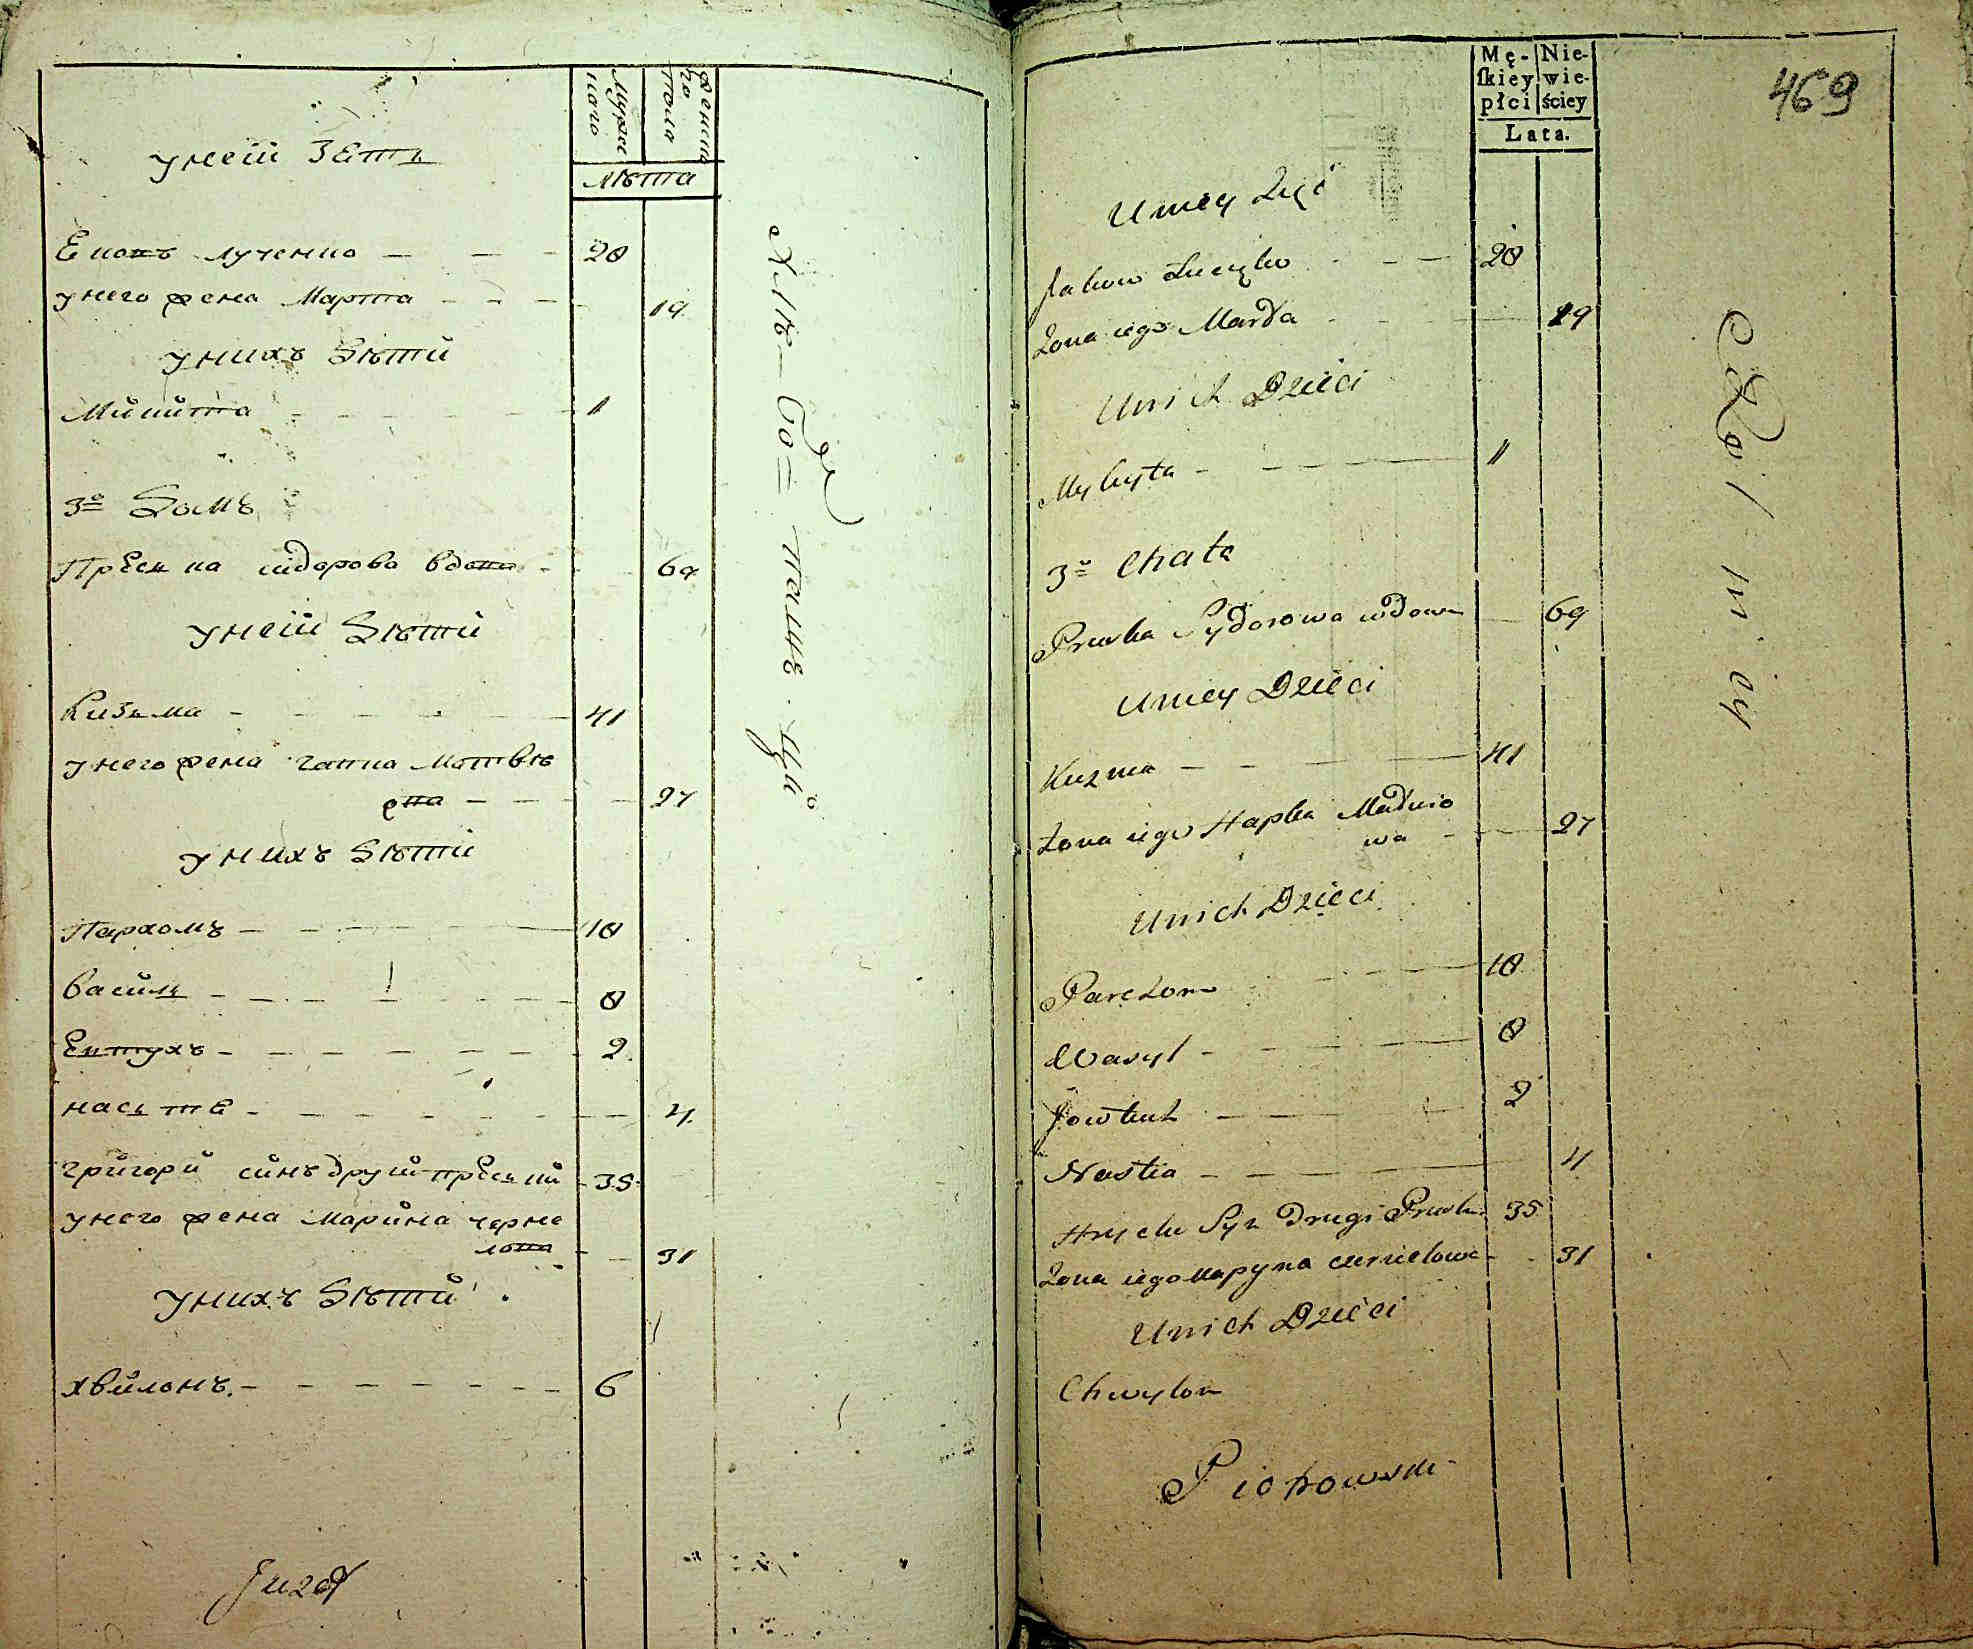 Мужескаго
Женскаго
пола
лѣта
у неій зеть
Ековъ лученко 28
у него жена Марта 19
у нихъ дѣти
Микита 1
3º домъ
Прѣська сидорова вдова 69
у неій дѣти
Кизьма 41
у него жена гапка Мотвѣ
ова 27
у нихъ дѣти
Пархомъ 10
василь 8
Евтухъ 2
насьтѣ 4
григорй синъ другий прѣськи 35
у него жена Марина черне
лова 31
у нихъ дѣти
хвилонъ 6
Juzef
469
Mę-skiey płci
Nie-wie-ściey
Lata.
U niey Zięć
Jakow Łuczko 28
Żona iego Marta 19
U nich Dzieci
Mykyta 1
3º Chata
Pruska Sydorowa wdowa 69
U niey Dzieci
Kuzma 41
Żona iego Hapka Matwio
wa 27
U nich Dzieci
Parchom 10
Wasyl 8
Jowtuch 2
Nastia 4
Hrycko Syn Drugi Pruski 35
Żona iego Maryna czernelowa 31
U nich Dzieci
Chwylon
Piotrowski